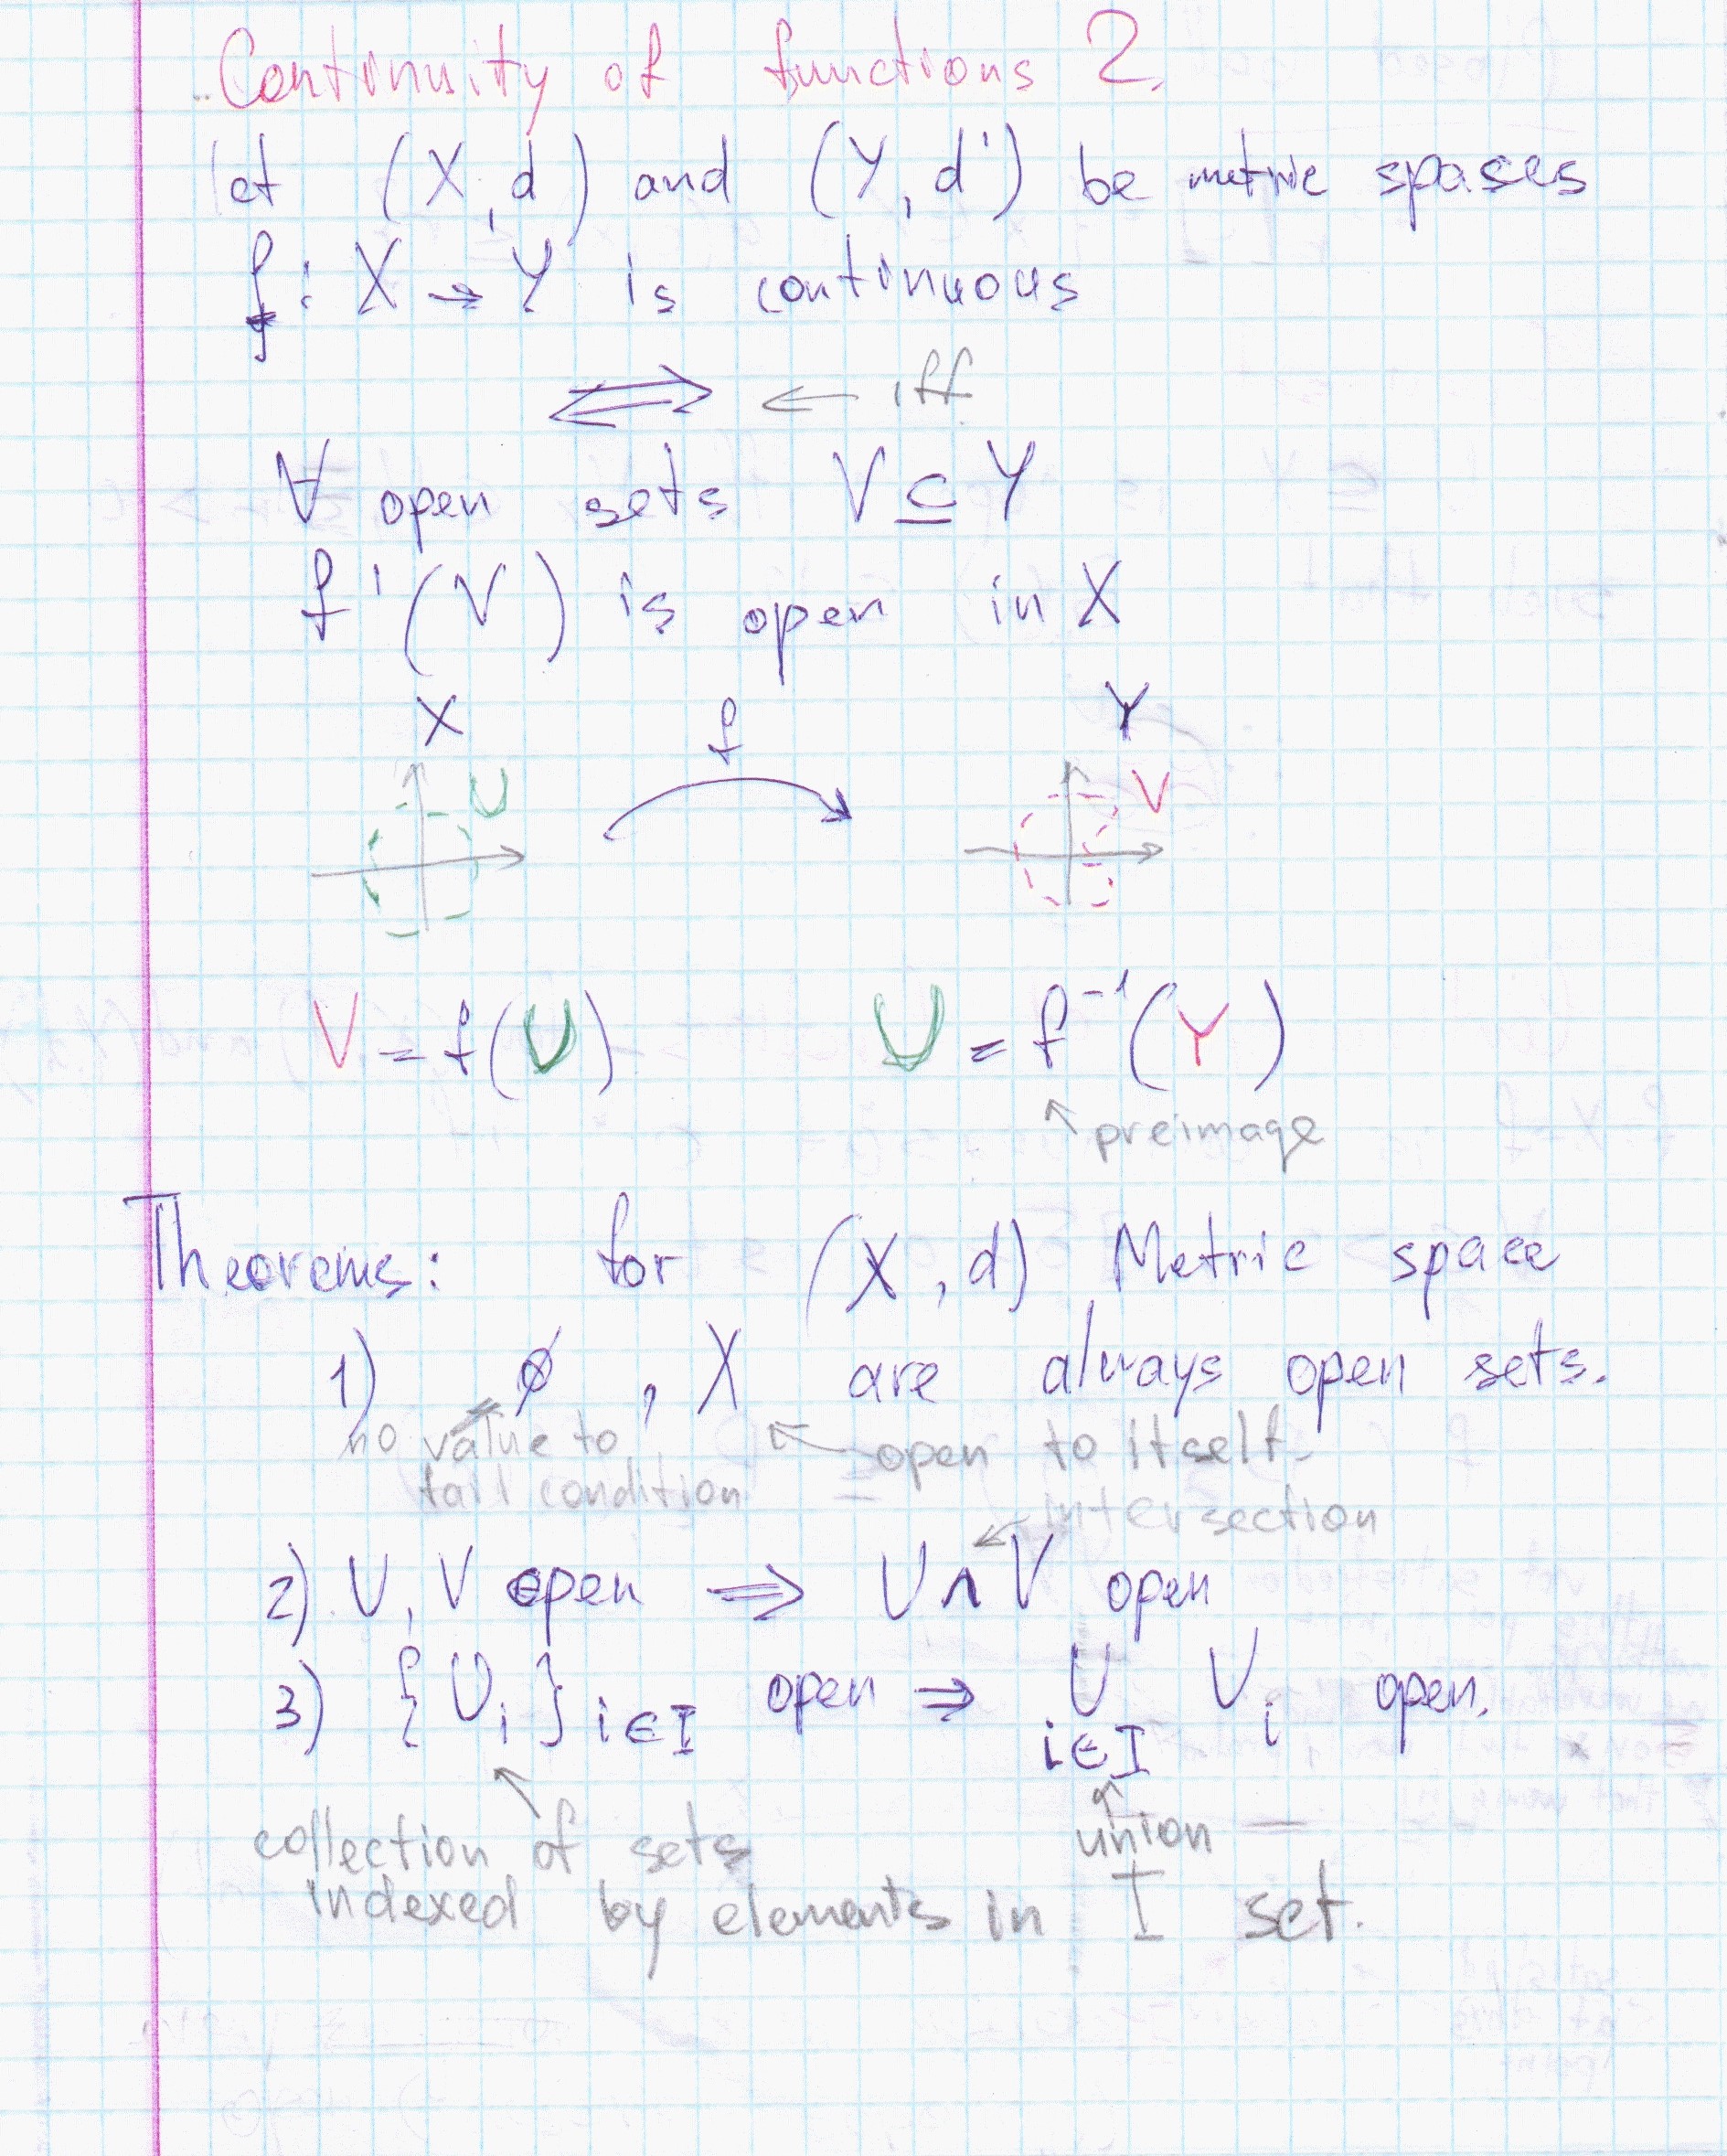 Continuity of functions 2.
let (X, d) and (Y, d') be metric spases
f: X → Y is continuous
⟺ ← iff
∀ open sets V ⊆ Y
f'(V) is open in X
X f Y
U V
V = f(U) U = f⁻¹(Y)
↖ preimage
Theorems: for (X, d) Metric space
1) ∅, X are always open sets.
no value to ↖ open to itself.
fail condition
intersection
2) U, V open ⟹ U ∩ V open
3) {U_i}_{i∈I} open ⇒ ⋃_{i∈I} U_i open.
collection of sets union
indexed by elements in I set.